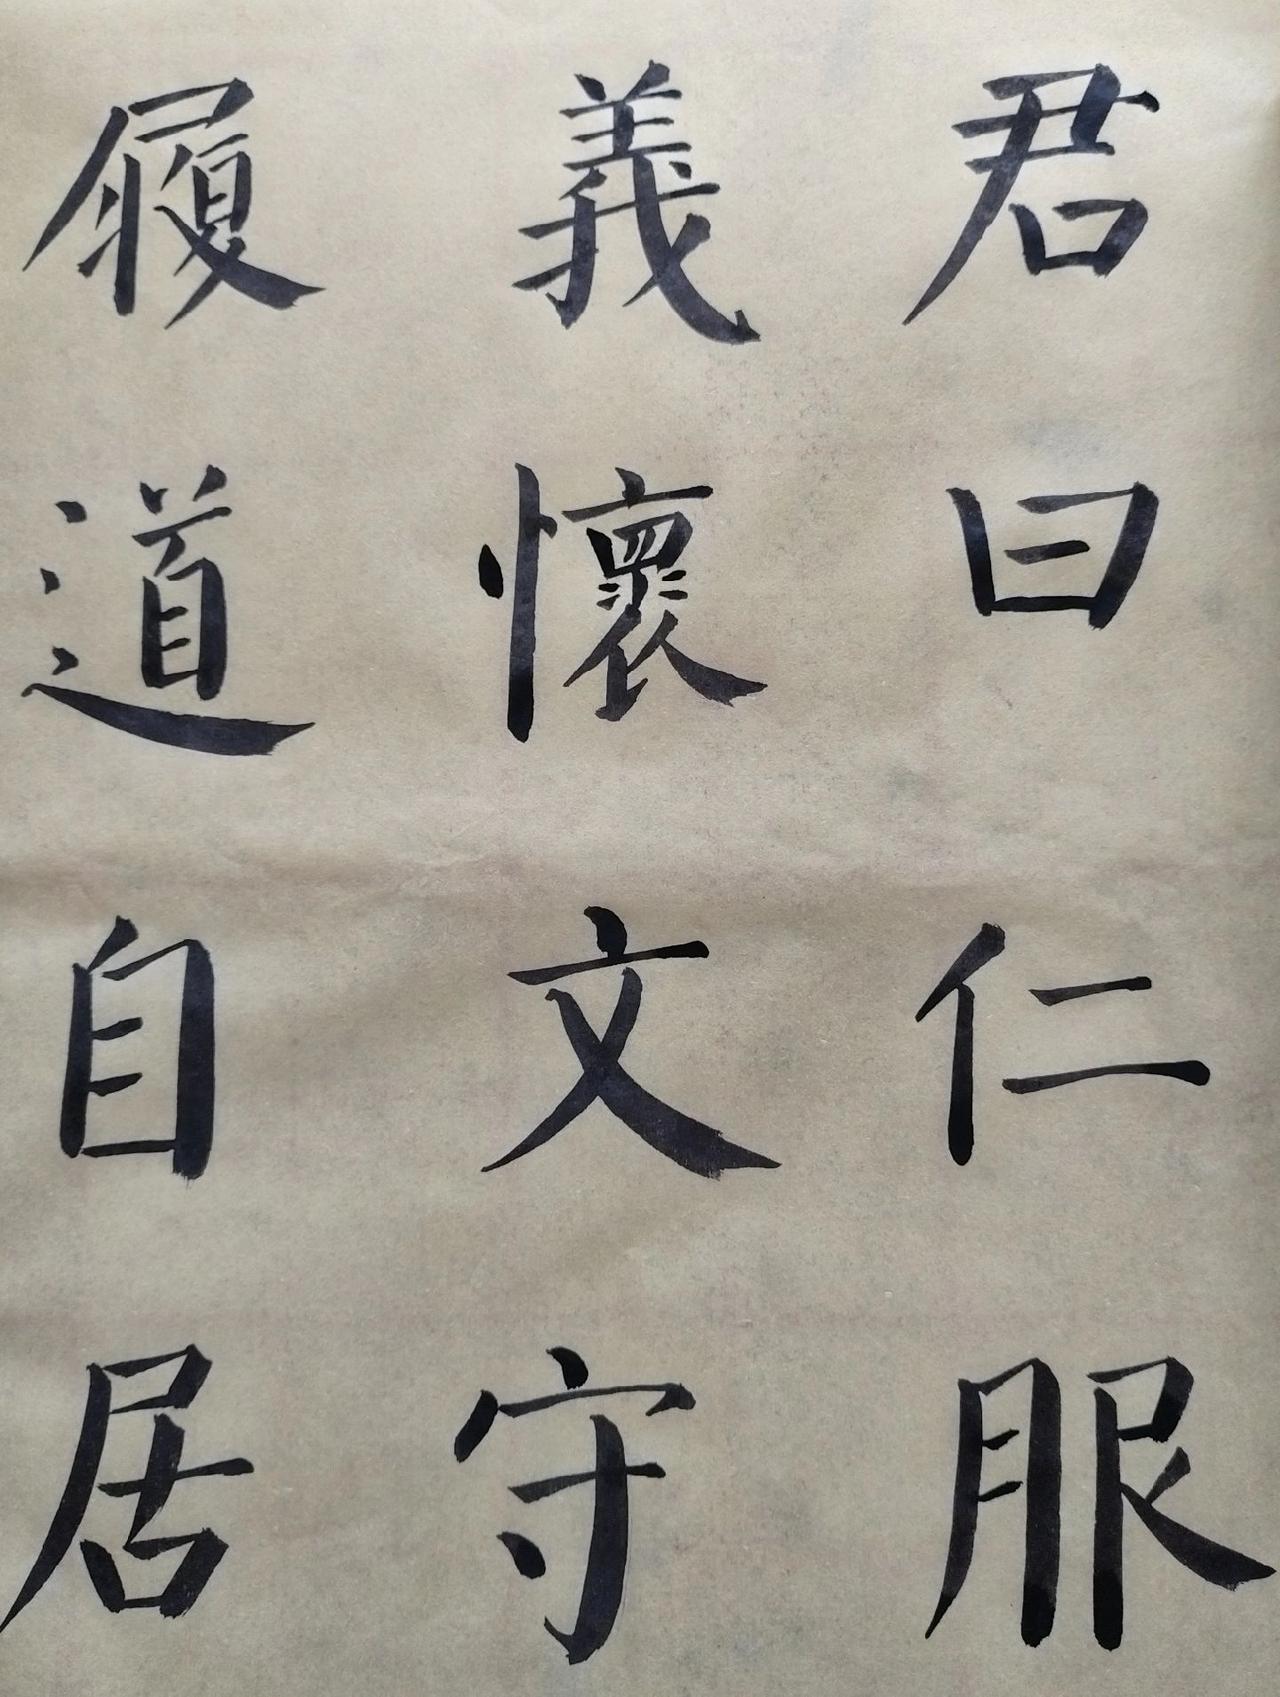 君曰仁服
義懷文守
履道自居